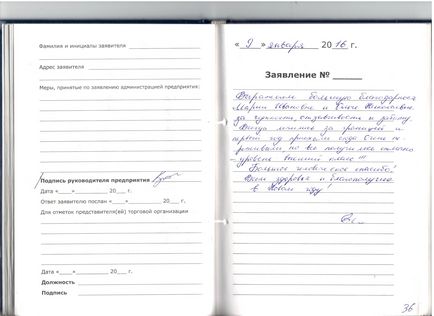 Фамилия и инициалы заявителя
Адрес заявителя
Меры, принятые по заявлению администрацией предприятия:
Подпись руководителя предприятия
Дата «___»________ 20___ г.
Ответ заявителю послан «___»________ 20___ г.
Для отметок представителя(ей) торговой организации
Дата «___»________ 20___ г.
Должность
Подпись
« 9 » января 2016 г.
Заявление № _____
Выражаем большую благодарность
Марии Ивановне и
за чуткость, отзывчивость и заботу.
Всегда за границей и
первый год приехали сюда. Очень
но все получилось отлично
– уровень высший класс!!!
Большое человеческое спасибо!
Всем здоровья и благополучия
в Новом году!
36